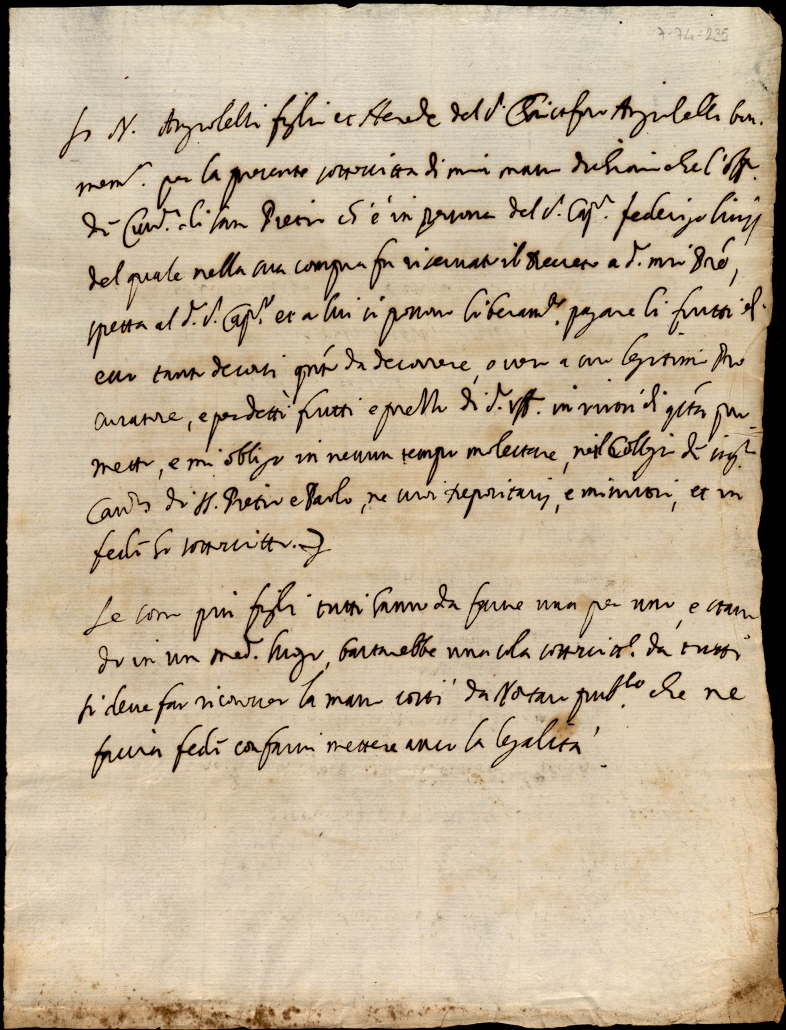 7-74-235
Io N. Angiolelli figlio et Herede del s.r Christofaro Angiolelli bon.
mem.a per la presente sottoscritta di mia mano dichiaro che l'off.o
di Cav.re di san Pietro ch'è in persona del s.r Cap.no federigo
del quale nella sua compra fu riservato il Decreto a d.o mio Pre,
spetta al d.o s.r Cap.no et a lui si possono liberam.te pagare li frutti
tanto decorsi q.nto da decorrere, o vero a suo legitimo Pro
curatore, e per detti frutti e prezzo di d.o uff.o in virtù di q.sta pro
metto, e mi obligo in nessun tempo molestare, nè il Collegio di
Cav.ri di SS. Pietro e Paolo, ne suoi depositarij, e ministri, et in
fede ho sottoscritto.
Se sono più figli tutti hanno da farne una per uno, e stan
do in un med.o luogo, bastarebbe una sola sottoscritt.a da tutti
si deve far riconoscer la mano costì da Notaro pub.co che ne
faccia fede con farvi mettere anco la legalità